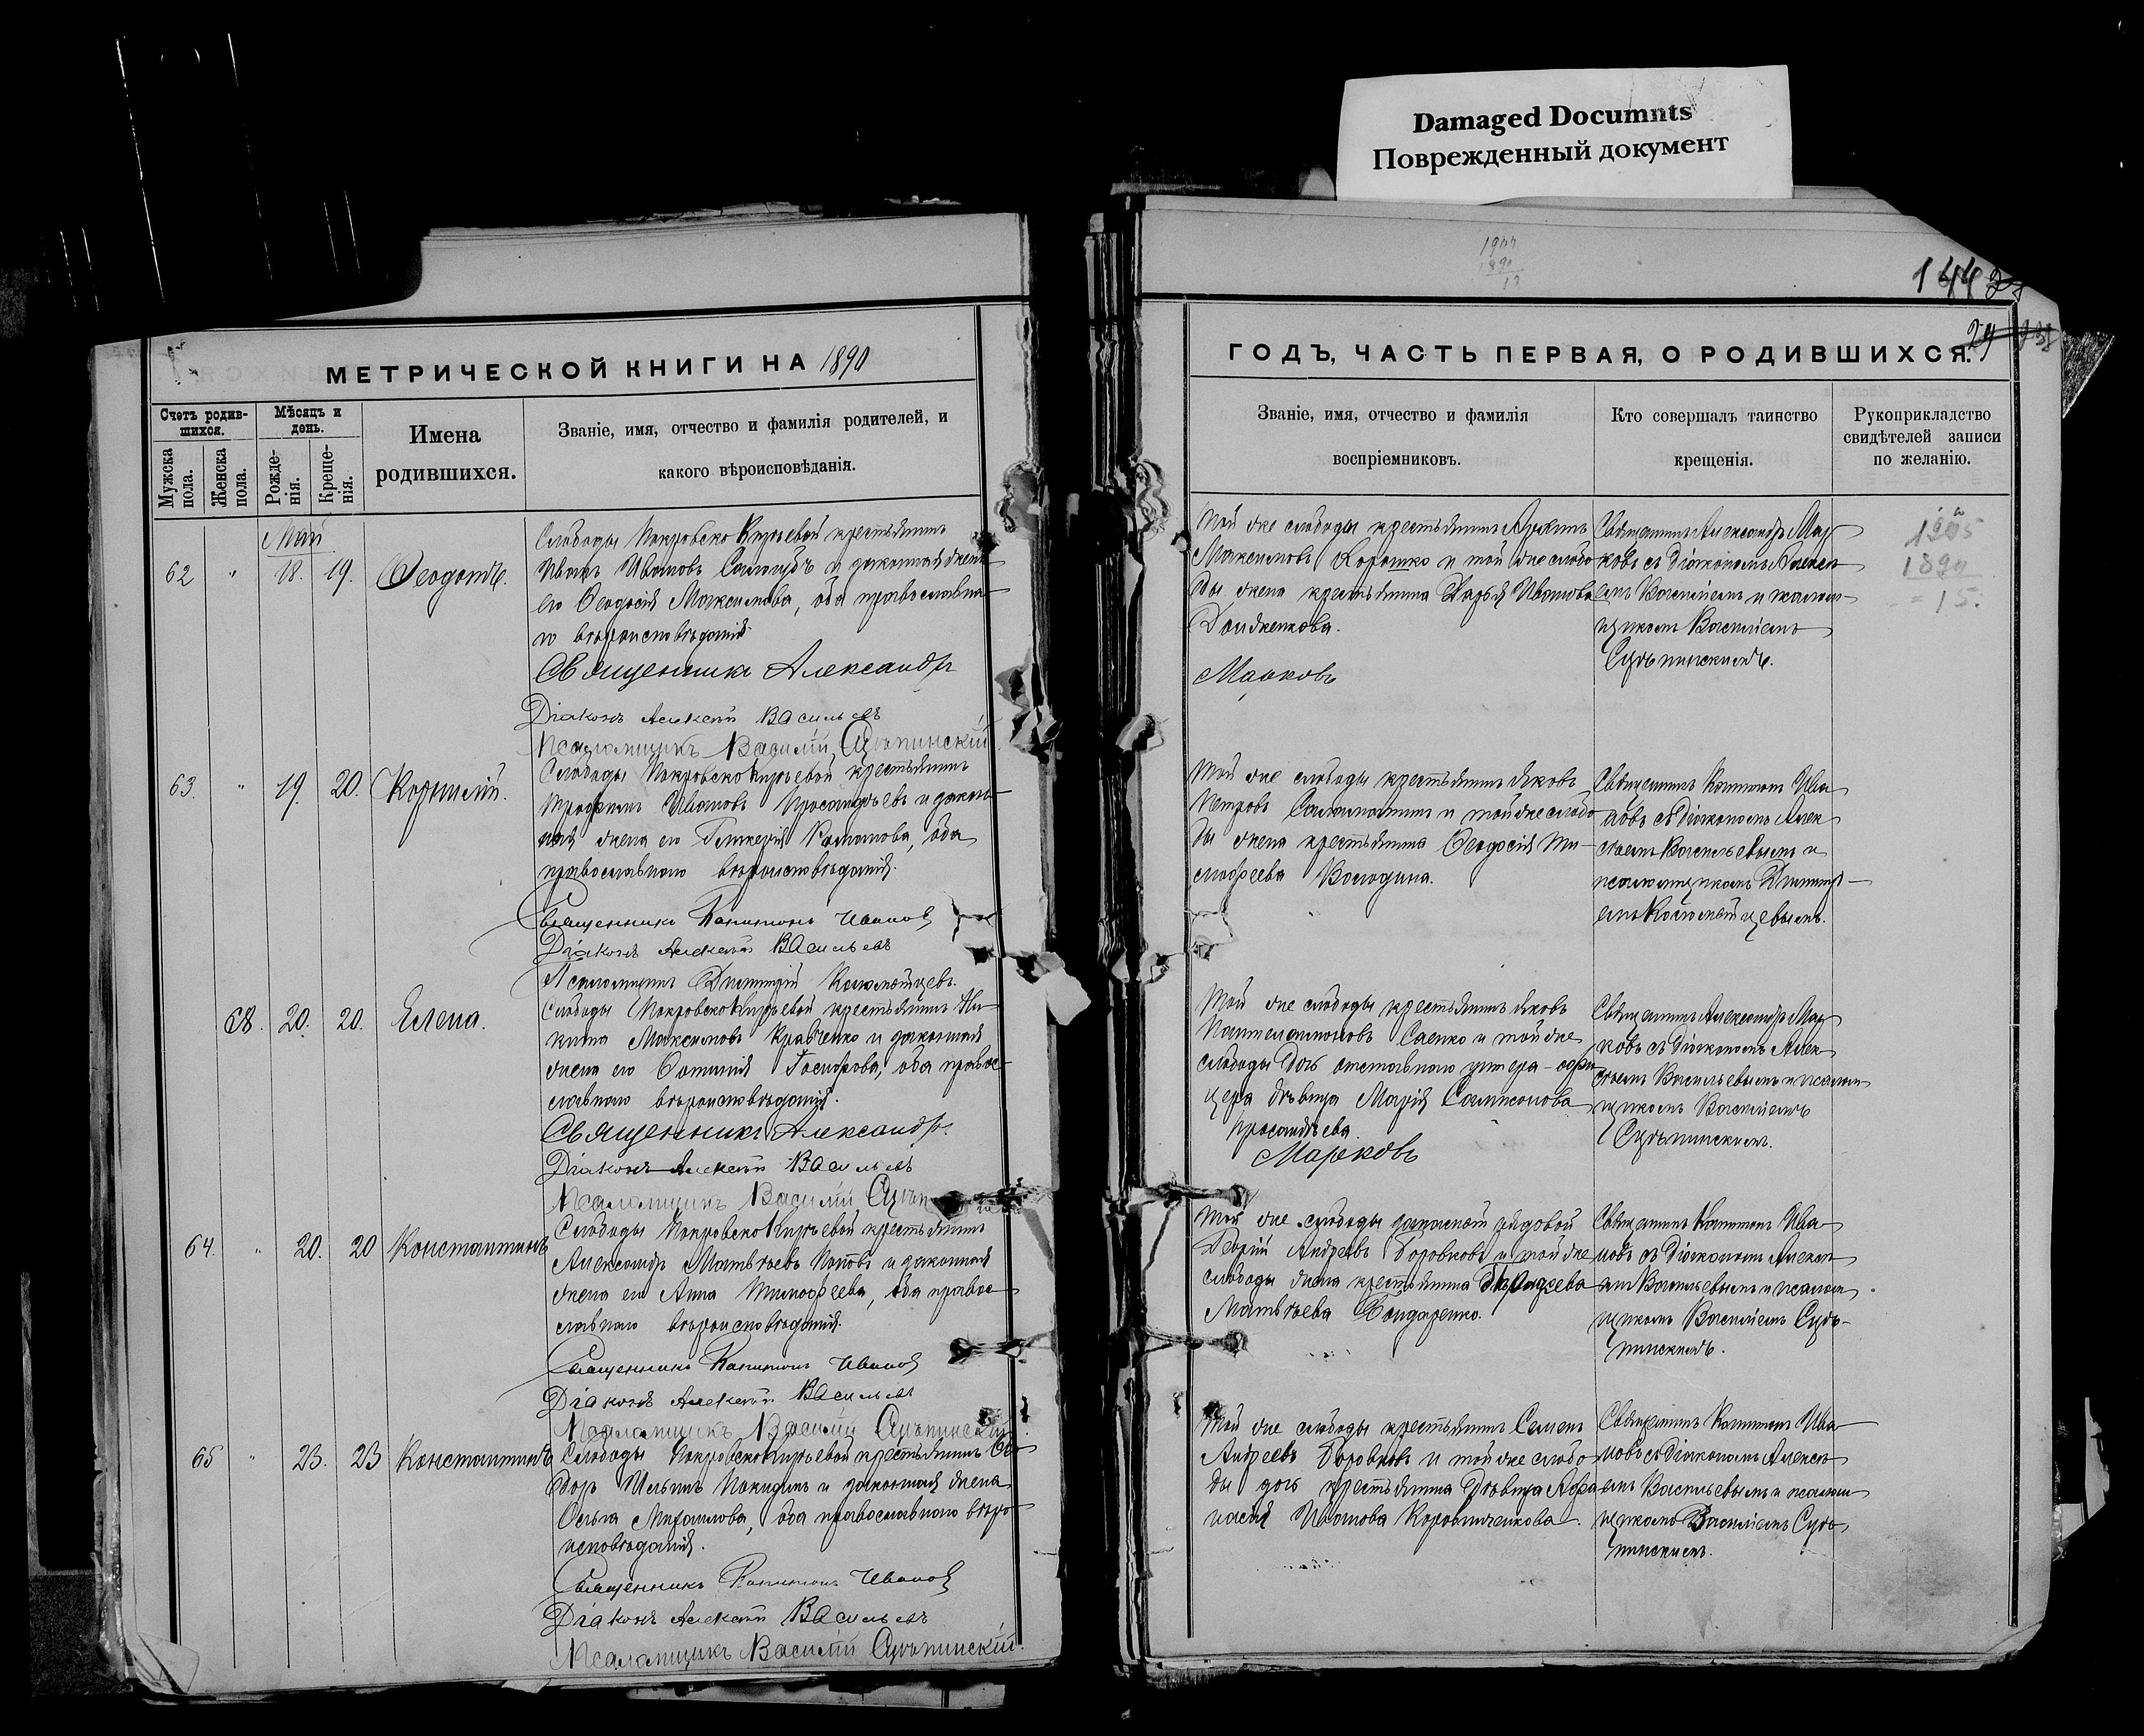 Damaged Documnts
Поврежденный документ
144
29
МЕТРИЧЕСКОЙ КНИГИ НА 1890
Счетъ родив-
шихся.
Мужска
пола.
Женска
пола.
Мѣсяцъ и
день.
Рожде-
нія.
Креще-
нія.
Имена
родившихся.
Званіе, имя, отчество и фамилія родителей, и
какого вѣроисповѣданія.
Май
62 " 18. 19. Ѳеодотъ.
Слободы Покровско Кирѣевой крестьянинъ
Иванъ Ивановъ и законная жена
его Ѳеодосія Максимова, оба православна-
го вѣроисповѣданія.
Священникъ Александръ
Діаконъ Алексѣй Васильевъ
Псаломщикъ Василій Сцѣпинскій
63. " 19. 20. Корнилій.
Слободы Покровско Кирѣевой крестьянинъ
Трофимъ Ивановъ и закон-
ная жена его Гликерія, оба
православнаго вѣроисповѣданія.
Священникъ Капитонъ Ивановъ
Діаконъ Алексѣй Васильевъ
Псаломщикъ Димитрій Коломѣйцевъ.
68. 20. 20. Елена.
Слободы Покровско Кирѣевой крестьянинъ Ни-
кита Максимовъ Кравченко и законная
жена его Фотинія, оба правос-
лавнаго вѣроисповѣданія.
Священникъ Александръ.
Діаконъ Алексѣй Васильевъ
Псаломщикъ Василій Сцѣп
64. " 20. 20 Константинъ
Слободы Покровско Кирѣевой крестьянинъ
Александръ Матвѣевъ Поповъ и законная
жена его Анна Тимофеева, оба правос-
лавнаго вѣроисповѣданія.
Священникъ Капитонъ Ивановъ
Діаконъ Алексѣй Васильевъ
Псаломщикъ Василій Сцѣпинскій
65 " 23. 23 Константинъ
Слободы Покровско Кирѣевой крестьянинъ Ѳе-
доръ Ильинъ Покидинъ и законная жена
Ольга Михайлова, оба православнаго вѣро-
исповѣданія.
Священникъ Капитонъ Ивановъ
Діаконъ Алексѣй Васильевъ
Псаломщикъ Василій Сцѣпинскій.
ГОДЪ, ЧАСТЬ ПЕРВАЯ, О РОДИВШИХСЯ.
Званіе, имя, отчество и фамилія
воспріемниковъ.
Кто совершалъ таинство
крещенія.
Рукоприкладство
свидѣтелей записи
по желанію.
Той же слободы крестьянинъ
Максимовъ Корошко и той же слобо-
ды жена крестьянина Дарья Иванова
Долженкова.
Марковъ
Священникъ Александръ Мар-
ковъ съ діакономъ Алексѣ-
емъ Васильевымъ и псалом-
щикомъ Василіемъ
Сцѣпинскимъ.
1905
1890
= 15.
Той же слободы крестьянинъ Яковъ
Петровъ и той же слобо-
ды жена крестьянина Ѳеодосія Ти-
мофеева Володина.
Священникъ Капитонъ Ива-
новъ съ діакономъ Алек-
сѣемъ Васильевымъ и
псаломщикомъ Димитрі-
емъ Коломѣйцевымъ.
Той же слободы крестьянинъ Яковъ
Пантелеимоновъ Саенко и той же
слободы дочь отставного унтеръ-офи-
цера дѣвица Марія Сампсонова
Марковъ
Священникъ Александръ Мар-
ковъ съ діакономъ Алек-
сѣемъ Васильевымъ и псалом-
щикомъ Василіемъ
Сцѣпинскимъ.
Той же слободы запасной рядовой
Георгій Андреевъ Боровковъ и той же
слободы жена крестьянина
Матвѣева Бондаренко.
Священникъ Капитонъ Ива-
новъ съ діакономъ Алексѣ-
емъ Васильевымъ и псалом-
щикомъ Василіемъ Сцѣ-
пинскимъ.
Той же слободы крестьянинъ Семенъ
Андреевъ Боровковъ и той же слобо-
ды дочь крестьянина дѣвица Афа-
насія Иванова Коровниченкова.
Священникъ Капитонъ Ива-
новъ съ діакономъ Алексѣ-
емъ Васильевымъ и псалом-
щикомъ Василіемъ Сцѣ-
пинскимъ.